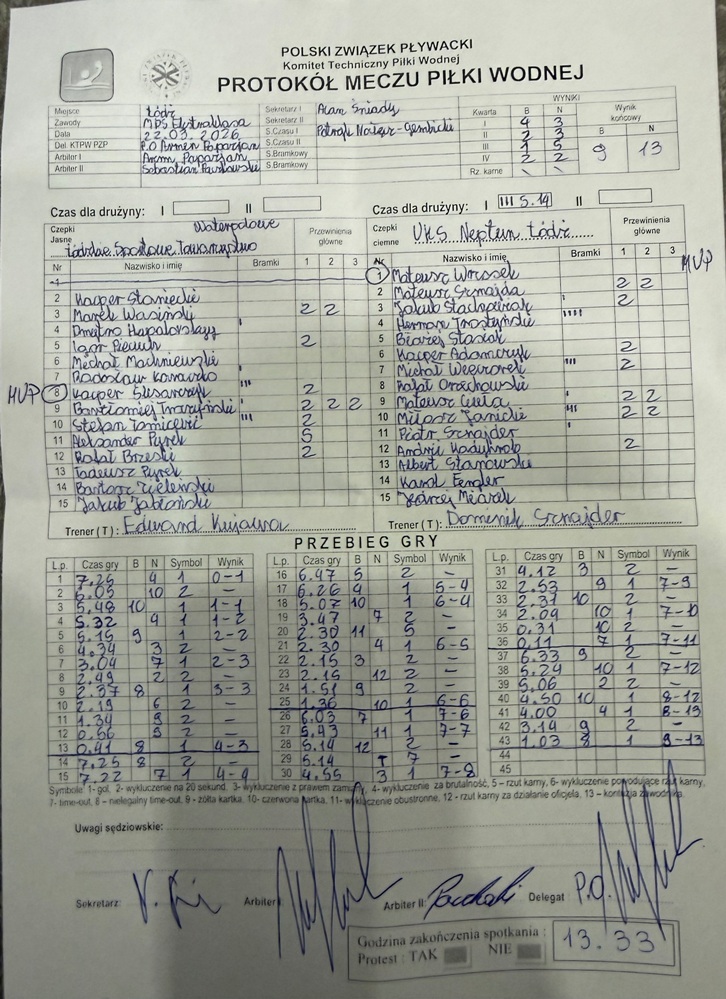 POLSKI ZWIĄZEK PŁYWACKI
Komitet Techniczny Piłki Wodnej
PROTOKÓŁ MECZU PIŁKI WODNEJ
Miejsce Łódź
Zawody MPS Ekstraklasa
Data 22.03.2026
Del. KTPW PZP P.O Armen Paparjan
Arbiter I Armen Paparjan
Arbiter II Sebastian
Sekretarz I Alan Śniady
Sekretarz II
S.Czasu I Patryk
S.Czasu II
S.Bramkowy
S.Bramkowy
WYNIKI
Kwarta B N Wynik końcowy
I 4 3 B N
II 2 3 9 13
III 1 5
IV 2 2
Rz. karne \ \
Czas dla drużyny: I II
Czas dla drużyny: I III 5.14 II
Czepki Jasne Waterpolowe Łódzkie Sportowe Towarzystwo
Przewinienia główne
Nr Nazwisko i imię Bramki 1 2 3
1
2 Kacper Staniecki
3 Marek Wasiński 2 2
4 Dmytro
5 Igor 2
6 Michał Machniewski
7 Radosław
MVP 8 Kacper ''' 2
9 Bartłomiej ' 2 2 2
10 Stefan ''' 2
11 Aleksander Pyrek 5
12 Rafał Brzeski 2
13 Tadeusz Pyrek
14 Bartosz Zieleński
15 Jakub Jabłoński
Trener ( T ) : Edward Kujawa
Czepki ciemne UKS Neptun Łódź
Przewinienia główne
Nr Nazwisko i imię Bramki 1 2 3
1 Mateusz MVP
2 Mateusz Sznajda 2 2
3 Jakub ' 2
4 Herman ''''
5 Błażej Stasiak
6 Kacper Adamczyk 2
7 Michał ''' 2
8 Rafał Orzechowski
9 Mateusz ' 2 2
10 Miłosz Janicki ''' 2 2
11 Piotr Sznajder '
12 Andrii 2
13 Albert
14 Karol Fengler
15
Trener ( T ) : Dominik Sznajder
PRZEBIEG GRY
L.p. Czas gry B N Symbol Wynik
1 7.25 4 1 0-1
2 6.05 10 2 –
3 5.48 10 1 1-1
4 5.32 4 1 1-2
5 5.15 9 1 2-2
6 4.34 3 2 –
7 3.04 7 1 2-3
8 2.49 2 2 –
9 2.37 8 1 3-3
10 2.19 6 2 –
11 1.34 9 2 –
12 0.56 9 2 –
13 0.41 8 1 4-3
14 7.25 8 2 –
15 7.22 7 1 4-4
L.p. Czas gry B N Symbol Wynik
16 6.47 5 2 –
17 6.26 4 1 5-4
18 5.07 10 1 6-4
19 3.47 7 2 –
20 2.30 11 5 –
21 2.30 4 1 6-5
22 2.15 3 2 –
23 2.15 12 2 –
24 1.51 9 2 –
25 1.36 10 1 6-6
26 6.03 7 1 7-6
27 5.43 11 1 7-7
28 5.14 12 2 –
29 5.14 T 7 –
30 4.55 3 1 7-8
L.p. Czas gry B N Symbol Wynik
31 4.12 3 2 –
32 2.53 9 1 7-9
33 2.31 10 2 –
34 2.09 10 1 7-10
35 0.31 10 2 –
36 0.11 7 1 7-11
37 6.33 9 2 –
38 5.24 10 1 7-12
39 5.06 2 2 –
40 4.50 10 1 8-12
41 4.00 4 1 8-13
42 3.14 9 2 –
43 1.03 8 1 9-13
44
45
Symbole: 1- gol, 2- wykluczenie na 20 sekund, 3- wykluczenie z prawem zamiany, 4- wykluczenie za brutalność, 5 – rzut karny, 6- wykluczenie powodujące rzut karny,
7- time-out, 8 – nielegalny time-out, 9 - żółta kartka, 10- czerwona kartka, 11- wykluczenie obustronne, 12 - rzut karny za działanie oficjela, 13 – kontuzja zawodnika.
Uwagi sędziowskie:
Sekretarz: Arbiter I Arbiter II: Delegat P.O.
Godzina zakończenia spotkania : 13.33
Protest : TAK NIE